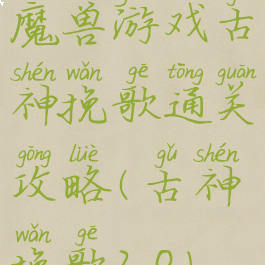 魔兽游戏古
shén wǎn gē tōng guān
神挽歌通关
gōng lüè gǔ shén
攻略(古神
wǎn gē
挽歌2.0)